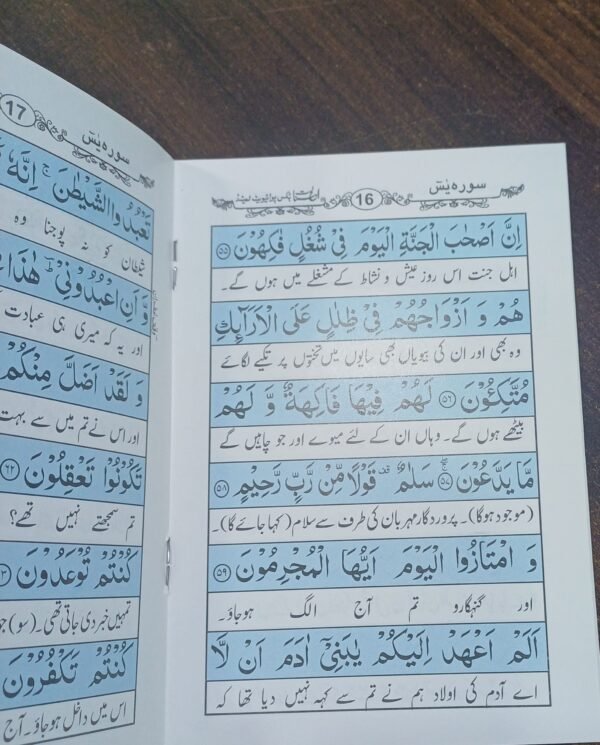 سورہ یٰسٓ
16
اِنَّ اَصْحٰبَ الْجَنَّةِ الْیَوْمَ فِیْ شُغُلٍ فٰكِهُوْنَ ۵۵
اہل جنت اس روز عیش و نشاط کے مشغلے میں ہوں گے۔
هُمْ وَ اَزْوَاجُهُمْ فِیْ ظِلٰلٍ عَلَی الْاَرَآئِكِ
وہ بھی اور ان کی بیویاں بھی سایوں میں تختوں پر تکیے لگائے
مُتَّكِـُٔوْنَ ۵۶ لَهُمْ فِیْهَا فَاكِهَةٌ وَّ لَهُمْ
بیٹھے ہوں گے۔ وہاں ان کے لئے میوے اور جو چاہیں گے
مَّا یَدَّعُوْنَ ۵۷ سَلٰمٌ قَوْلًا مِّنْ رَّبٍّ رَّحِیْمٍ ۵۸
(موجود ہوگا)۔ پروردگار مہربان کی طرف سے سلام (کہا جائے گا)۔
وَ امْتَازُوا الْیَوْمَ اَیُّهَا الْمُجْرِمُوْنَ ۵۹
اور گنہگارو تم آج الگ ہوجاؤ۔
اَلَمْ اَعْهَدْ اِلَیْكُمْ یٰبَنِیْۤ اٰدَمَ اَنْ لَّا
اے آدم کی اولاد ہم نے تم سے کہہ نہیں دیا تھا کہ
سورہ یٰسٓ
17
تَعْبُدُوا الشَّیْطٰنَ ۚ اِنَّهٗ
شیطان کو نہ پوجنا وہ
وَّ اَنِ اعْبُدُوْنِیْ ؕ هٰذَا
اور یہ کہ میری ہی عبادت
وَ لَقَدْ اَضَلَّ مِنْكُمْ
اور اس نے تم میں سے بہت
تَكُوْنُوْا تَعْقِلُوْنَ ۶۲
تم سمجھتے نہیں تھے؟
كُنْتُمْ تُوْعَدُوْنَ
تمہیں خبر دی جاتی تھی۔ (سو) جو
كُنْتُمْ تَكْفُرُوْنَ
اس میں داخل ہوجاؤ۔ آج